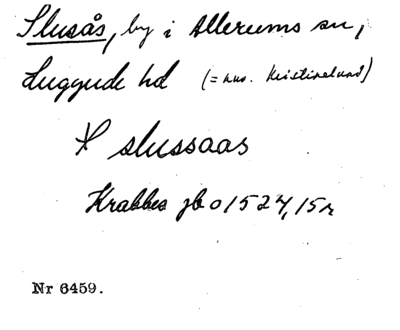 Slusås, by i Allerums sn,
Luggude hd (= nuv. Kristinelund)
* slussaas
Krabbes jb o 1524, 15r
Nr 6459.